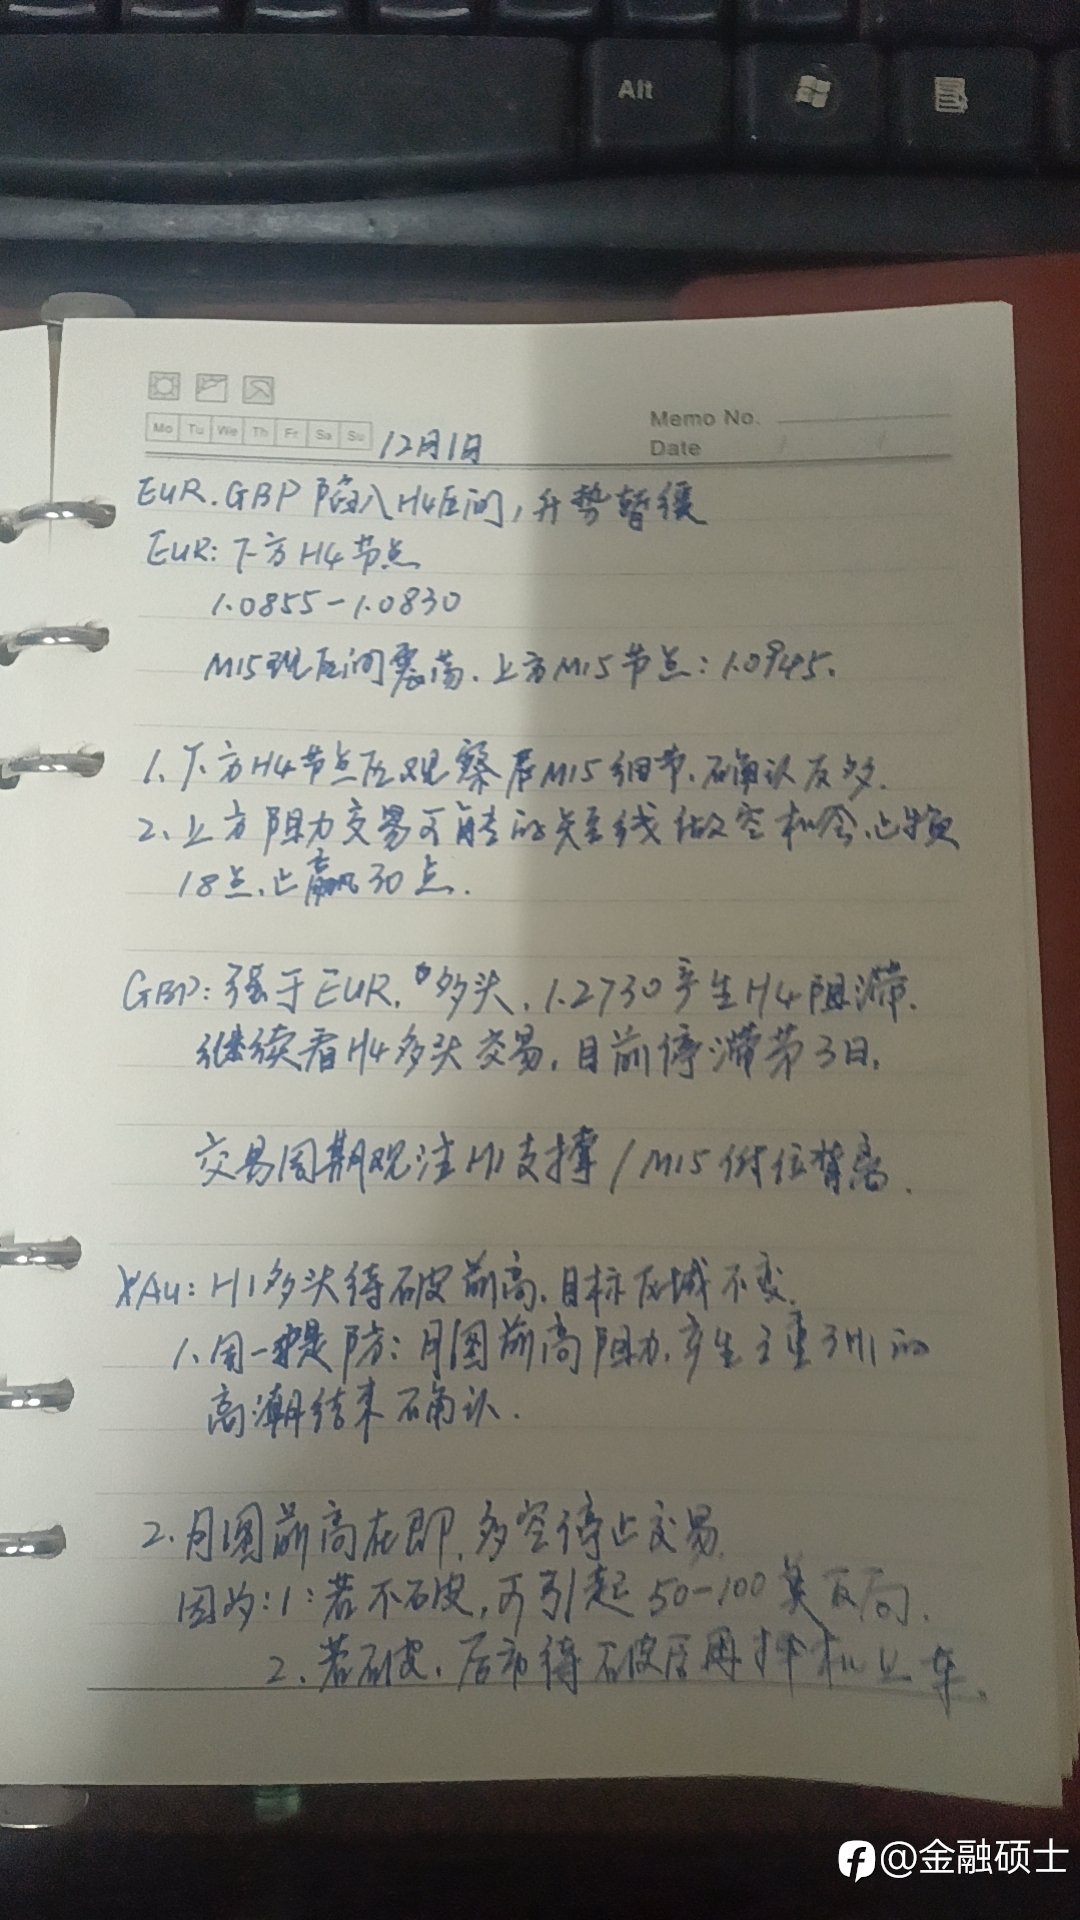 Alt
Mo Tu We Th Fr Sa Su
12月1日
Memo No.
Date
EUR.GBP 陷入H4区间,升势暂缓
EUR:下方H4节点
1.0855-1.0830
M15现区间震荡.上方M15节点:1.0945.
1.下方H4节点区观察M15细节.确认反多.
2.上方阻力交易可能的短线做空机会.止损
18点.止赢30点.
GBP:强于EUR.多头.1.2730产生H4阻滞.
继续看H4多头交易.目前停滞第3日.
交易周期观注H1支撑/M15低位背离.
XAu:H1多头待破前高.目标区域不变.
1.周一提防:月图前高阻力.产生主重于H1的
高潮结束确认.
2.月图前高在即.多空停止交易.
因为:1:若不破,可引起50-100美反向.
2.若破.后市待破后再择机上车.
@金融硕士